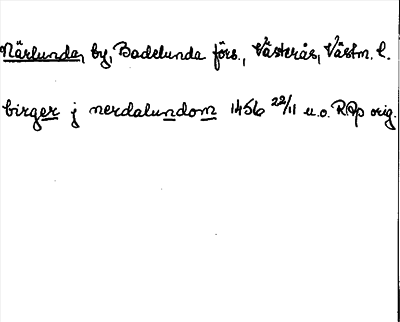 Närlunda, by, Badelunda förs., Västerås, Västm. l.
birger j nerdalundom 1456 22/11 u.o. RAp orig.